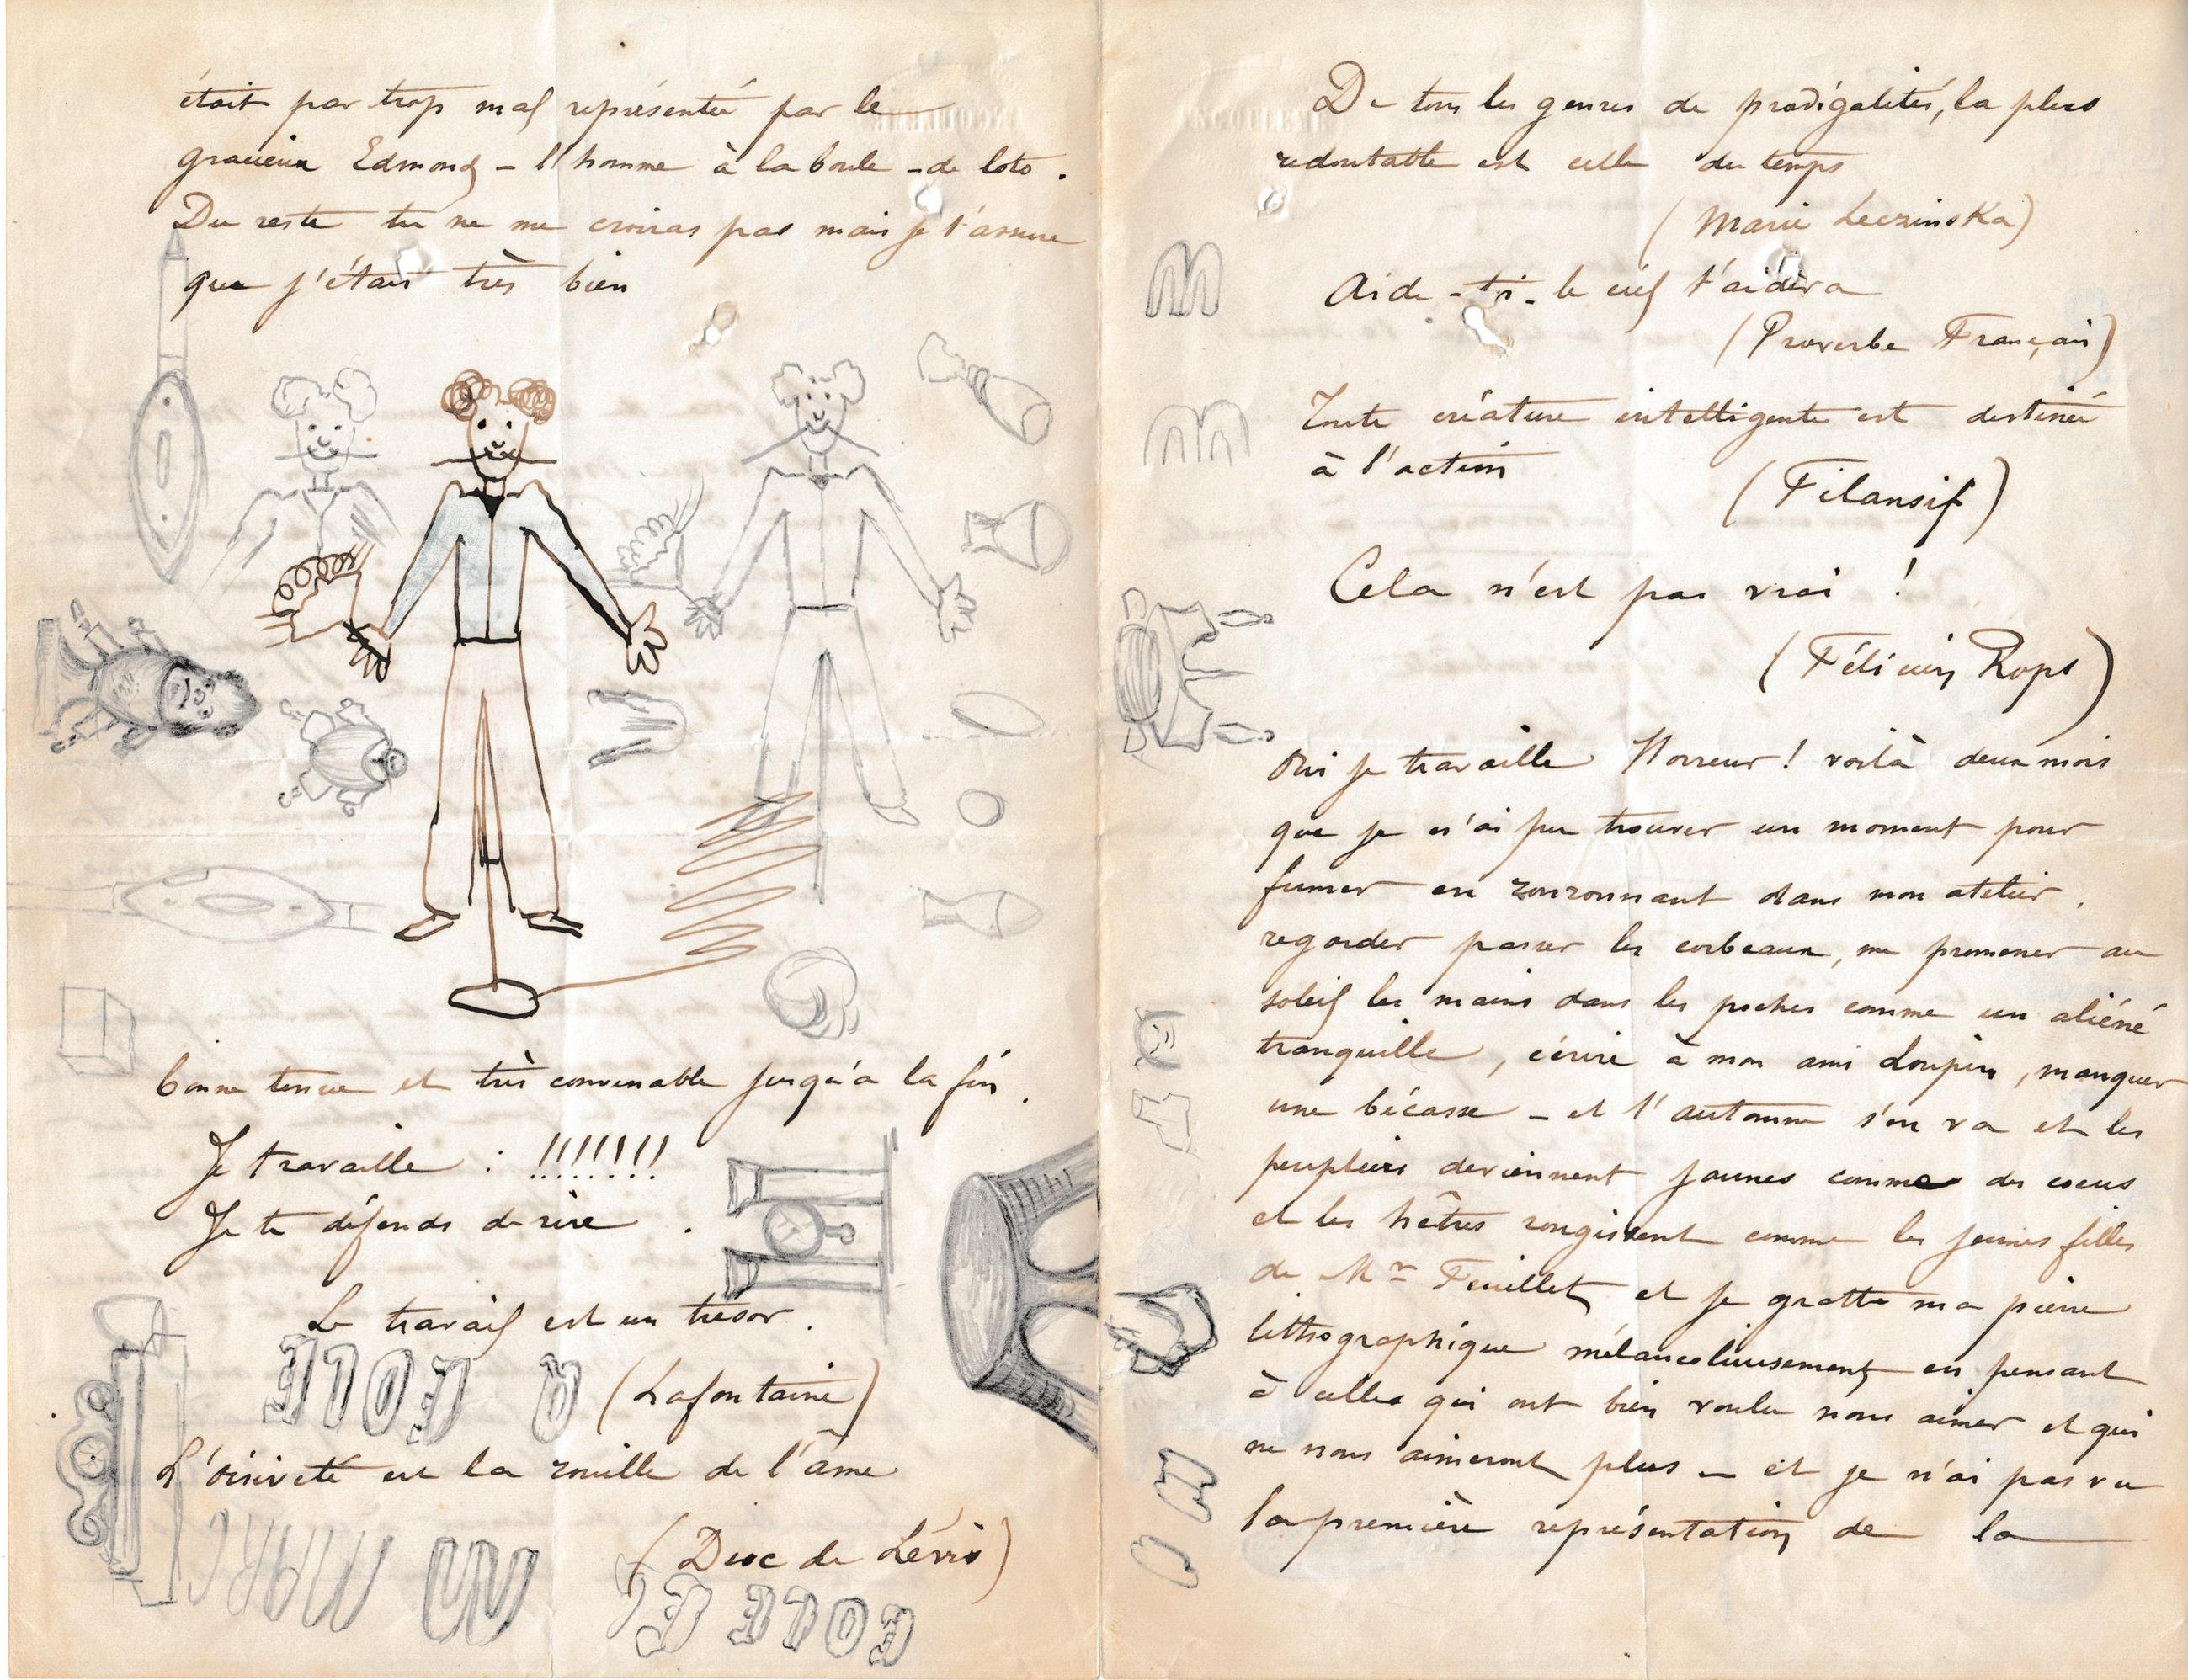 était par trop mal représentée par le
gracieux Edmond – l'homme à la boule – de loto.
Du reste tu ne me croiras pas mais je t'assure
que j'étais très bien
bonne tenue et très convenable jusqu'à la fin.
Je travaille : !!!!!!!!
Je te défends de rire.
Le travail est un trésor.
(Lafontaine)
L'oisiveté est la rouille de l'âme
(Duc de Lévis)
De tous les genres de prodigalités, la plus
redoutable est celle du temps
(Marie Leczinska)
Aide-toi – le ciel t'aidera
(Proverbe Français)
Toute créature intelligente est destinée
à l'action
(Filansif)
Cela n'est pas vrai !
(Félicien Rops)
Oui je travaille Horreur ! voilà deux mois
que je n'ai pu trouver un moment pour
fumer en ronronnant dans mon atelier,
regarder passer les corbeaux, me promener au
soleil les mains dans les poches comme un aliéné
tranquille, écrire à mon ami Loupin, manquer
une bécasse – et l'automne s'en va et les
peupliers deviennent jaunes comme des cocus
et les hêtres rougissent comme les jeunes filles
de Mr Feuillet et je gratte ma pierre
lithographique mélancolieusement en pensant
à celles qui ont bien voulu nous aimer et qui
ne nous aimeront plus – et je n'ai pas vu
la première représentation de la